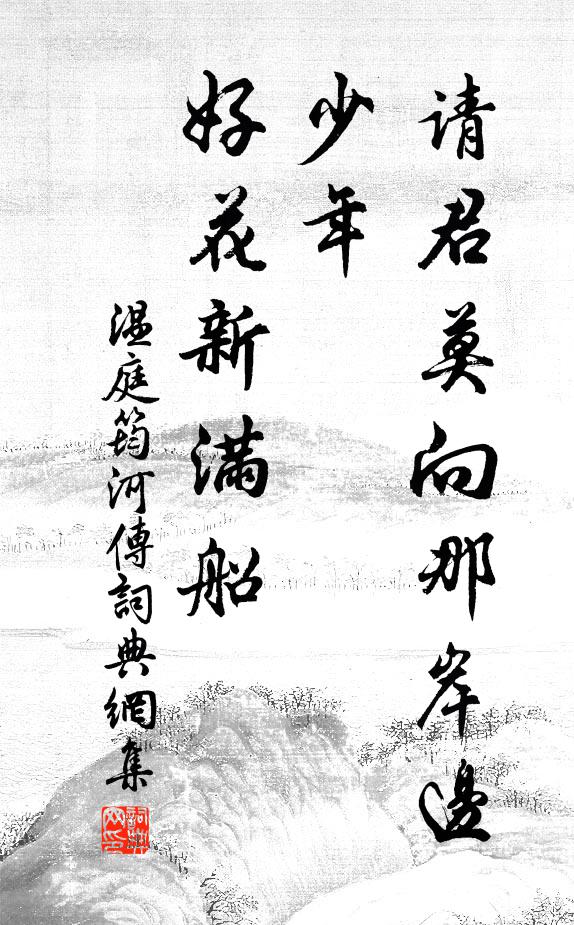 请君莫向那岸邊
少年
好花新满船
温庭筠河傳詞典網集